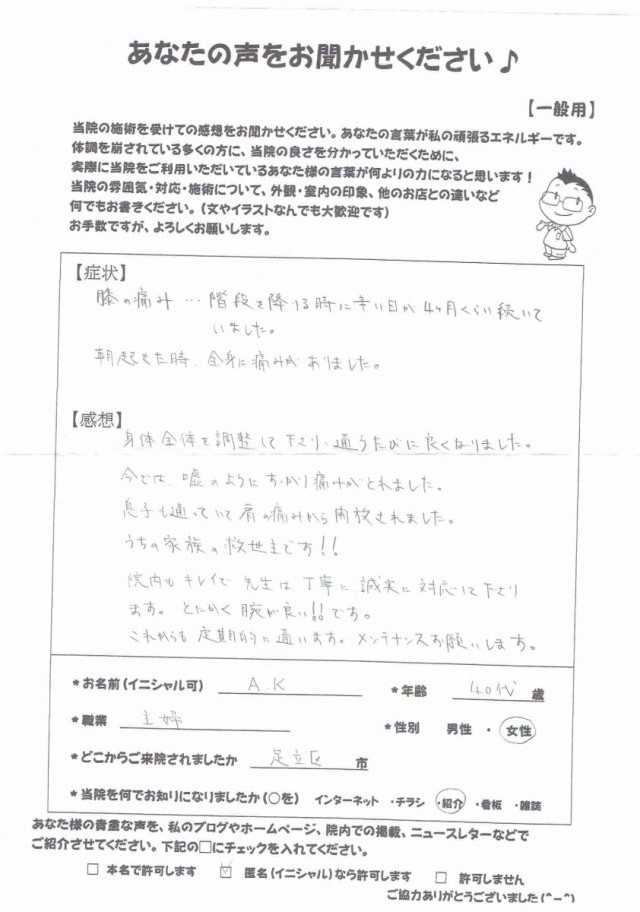 あなたの声をお聞かせください♪
【一般用】
当院の施術を受けての感想をお聞かせください。あなたの言葉が私の頑張るエネルギーです。
体調を崩されている多くの方に、当院の良さを分かっていただくために、
実際に当院をご利用いただいているあなた様の言葉が何よりの力になると思います！
当院の雰囲気・対応・施術について、外観・室内の印象、他のお店との違いなど
何でもお書きください。（文やイラストなんでも大歓迎です）
お手数ですが、よろしくお願いします。
【症状】
膝の痛み… 階段を降りる時に辛い日が4ヶ月くらい続いて
いました。
朝起きた時、全身に痛みがありました。
【感想】
身体全体を調整して下さり、通うたびに良くなりました。
今では、嘘のようにすっかり痛みがとれました。
息子も通っていて肩の痛みから開放されました。
うちの家族の救世主です!!
院内もキレイで 先生は 丁寧に、誠実に 対応して下さり
ます。とにかく 腕が良い!!です。
これからも 定期的に通います。メンテナンスお願いします。
*お名前（イニシャル可） A.K *年齢 40代 歳
*職業 主婦 *性別 男性 ・ 女性
*どこからご来院されましたか 足立区 市
*当院を何でお知りになりましたか（○を） インターネット ・チラシ ・紹介 ・看板 ・雑誌
あなた様の貴重な声を、私のブログやホームページ、院内での掲載、ニュースレターなどで
ご紹介させてください。下記の□にチェックを入れてください。
□ 本名で許可します ☑ 匿名（イニシャル）なら許可します □ 許可しません
ご協力ありがとうございました（^－^）